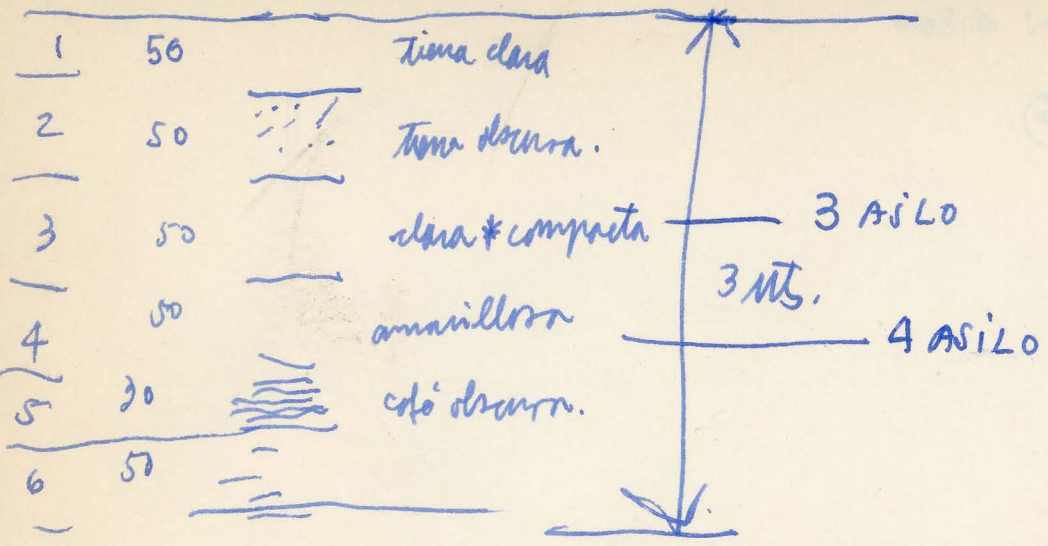 1 50 tierra clara
2 50 tierra obscura.
3 50 clara * compacta 3 ASILO
3 Mts.
4 50 amarillosa 4 ASILO
5 30 café obscura.
6 50